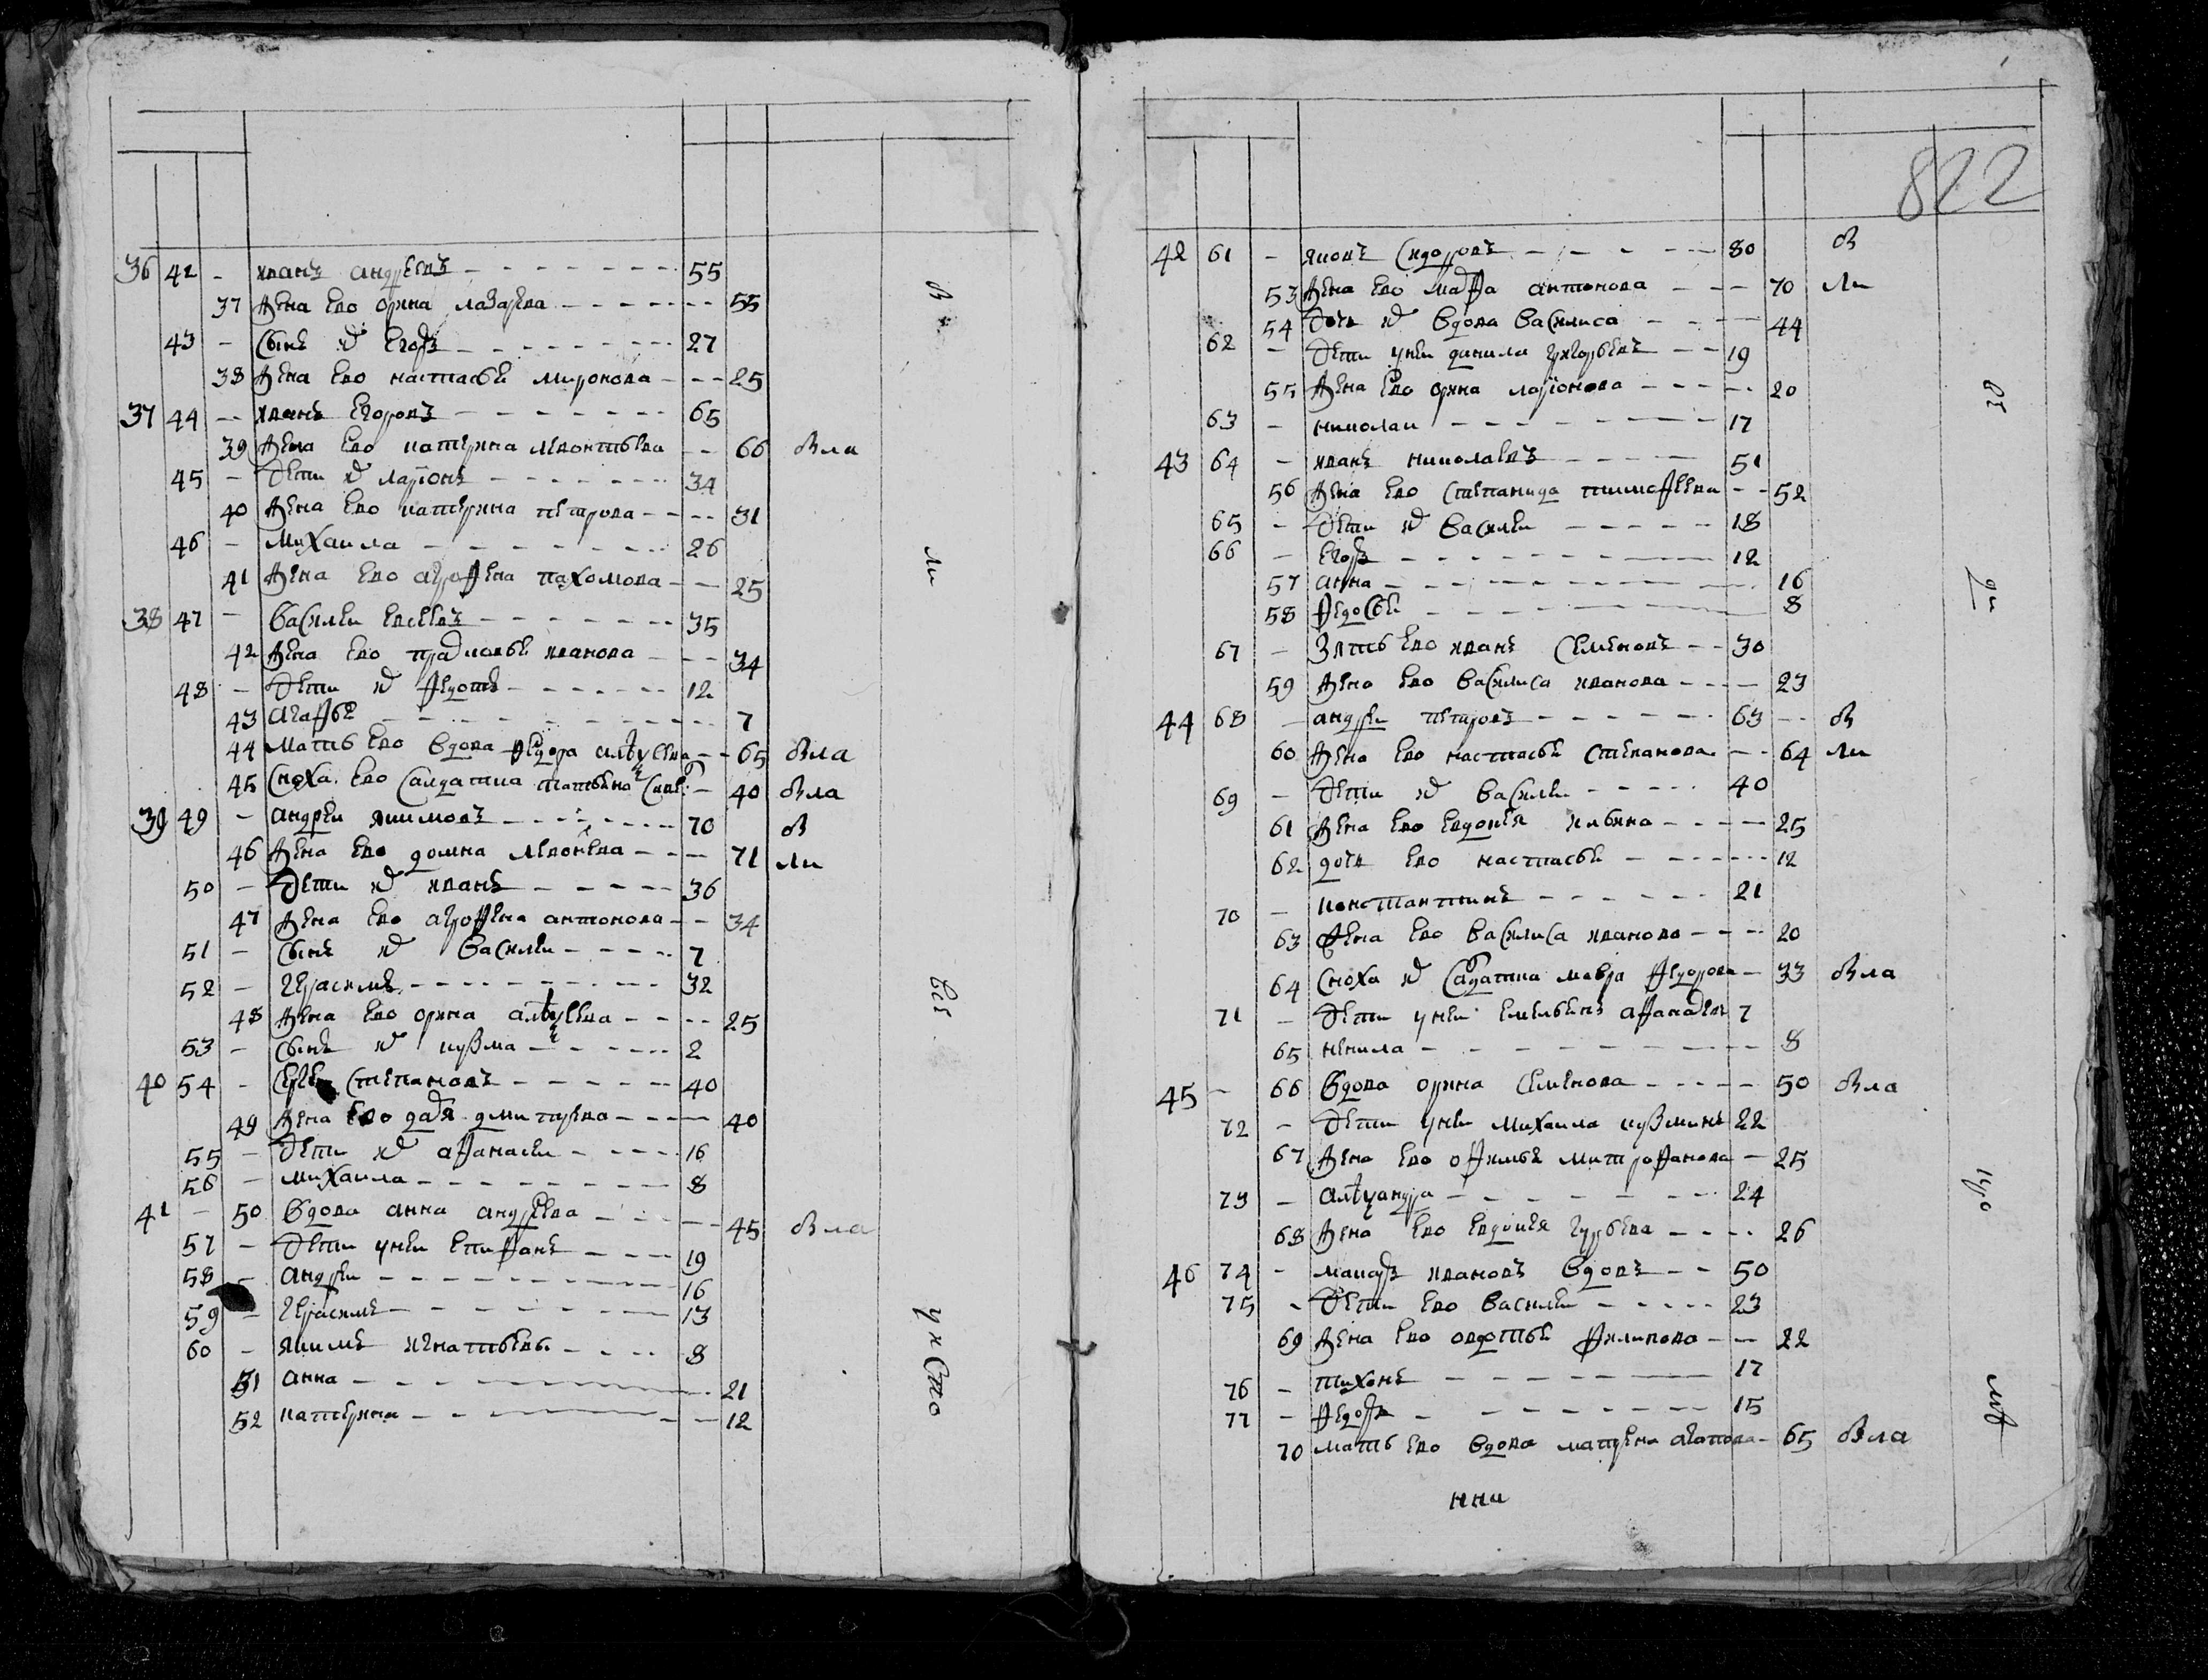 36 42 - иванъ андреевъ - 55
37 жена ево орина лазарева - 55
43 - сынъ их егоръ - 27
38 жена ево настасья миронова - 25
37 44 - иванъ егоровъ - 65
39 жена ево катерина леонтьева - 66 вла
45 - дети их ларионъ - 34
40 жена ево катерина петрова - 31
46 - михаила - 26
41 жена ево агрофена пахомова - 25
38 47 - василеи евсеевъ - 35
42 жена ево прасковья иванова - 34
48 - дети их федотъ - 12
43 агафья - 7
44 мать ево вдова федора алѯеева - 65 вла
45 сноха ево салдатка татьяна - 40 вла
39 49 - андреи якимовъ - 70 в
46 жена ево домна - 71 ли
50 - дети их иванъ - 36
47 жена ево агрофена антонова - 34
51 - сынъ их василеи - 7
52 - герасимъ - 32
48 жена ево орина алѯеева - 25
53 - сынъ их кузма - 2
40 54 - сергеи степановъ - 40
49 жена ево даря дмитрева - 40
55 - дети их афанасеи - 16
56 - михаила - 8
41 - 50 вдова анна андреева - 45 вла
57 - дети унеи епифанъ - 19
58 - андреи - 16
59 - герасимъ - 13
60 - якимъ игнатьевы - 8
51 анна - 21
52 катерина - 12
в
ли
все
ук сто
822
42 61 - яковъ сидоровъ - 80 в
53 жена ево марфа антонова - 70 ли
54 дочь их вдова василиса - 44
62 - дети унеи данила григорьевъ - 19
55 жена ево орина ларионова - 20
63 - николаи - 17
43 64 - иванъ николаевъ - 51
56 жена ево степанида тимофеева - 52
65 - дети их василеи - 18
66 - егоръ - 12
57 анна - 16
58 федосья - 8
67 - зять ево иванъ семеновъ - 30
59 жена ево василиса иванова - 23
44 68 - андреи петровъ - 63 - в
60 жена ево настасья степанова - 64 ли
69 - дети их василеи - 40
61 жена ево евдокея ильина - 25
62 дочь ево настасья - 12
70 - константинъ - 21
63 жена ево василиса иванова - 20
64 сноха их садатка мавра федорова - 33 вла
71 - дети унеи емельянъ афанасевъ 7
65 ненила - 8
45 - 66 вдова орина семенова - 50 вла
72 - дети унеи михаила кузминъ 22
67 жена ево офимья митрофанова - 25
73 - алѯандра - 24
68 жена ево евдокея гурьева - 26
46 74 - макаръ ивановъ вдовъ - 50
75 - дети ево василеи - 23
69 жена ево овдотья филипова - 22
76 - тихонъ - 17
77 - федоръ - 15
70 мать ево вдова матрена агапова - 65 вла
кро